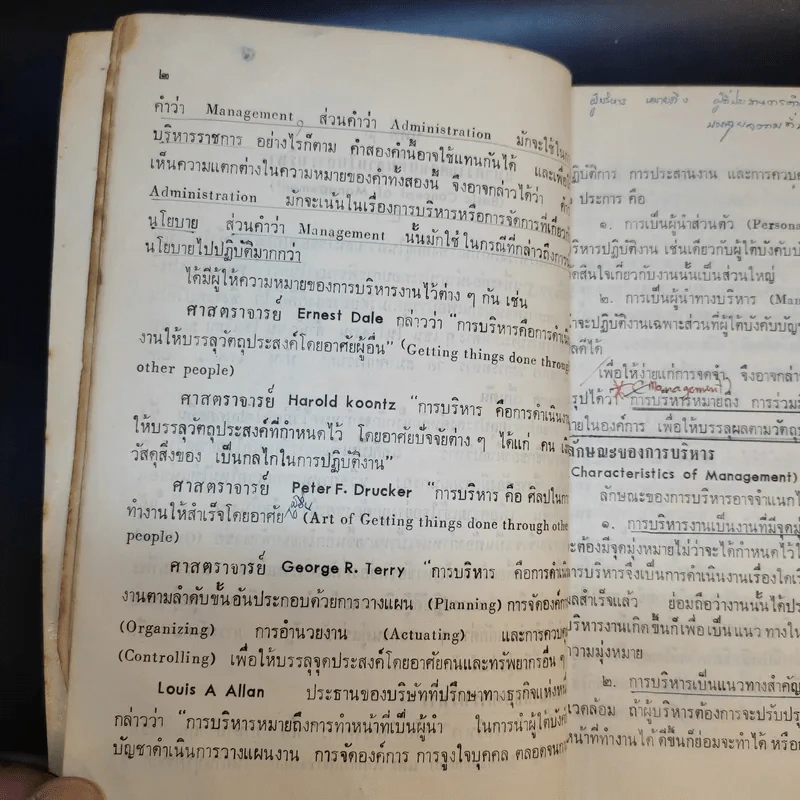 ๒
คำว่า Management ส่วนคำว่า Administration มักจะใช้ใน
บริหารราชการ อย่างไรก็ตาม คำสองคำนี้อาจใช้แทนกันได้ และเพื่อ
เห็นความแตกต่างในความหมายของคำทั้งสองนี้ จึงอาจกล่าวได้ว่า คำ
Administration มักจะเน้นในเรื่องการบริหารหรือการจัดการที่เกี่ยว
นโยบาย ส่วนคำว่า Management นั้นมักใช้ในกรณีที่กล่าวถึงการ
นโยบายไปปฏิบัติมากกว่า
ได้มีผู้ให้ความหมายของการบริหารงานไว้ต่าง ๆ กัน เช่น
ศาสตราจารย์ Ernest Dale กล่าวว่า “การบริหารคือการดำเนิน
งานให้บรรลุวัตถุประสงค์โดยอาศัยผู้อื่น” (Getting things done through
other people)
ศาสตราจารย์ Harold koontz “การบริหาร คือการดำเนินงาน
ให้บรรลุวัตถุประสงค์ที่กำหนดไว้ โดยอาศัยปัจจัยต่าง ๆ ได้แก่ คน
วัสดุสิ่งของ เป็นกลไกในการปฏิบัติงาน”
ศาสตราจารย์ Peter F. Drucker “การบริหาร คือ ศิลปในการ
ทำงานให้สำเร็จโดยอาศัย ผู้อื่น (Art of Getting things done through othe
people)
ศาสตราจารย์ George R. Terry “การบริหาร คือการดำเนิน
งานตามลำดับขั้นอันประกอบด้วยการวางแผน (Planning) การจัดองค์การ
(Organizing) การอำนวยงาน (Actuating) และการควบคุม
(Controlling) เพื่อให้บรรลุจุดประสงค์โดยอาศัยคนและทรัพยากรอื่น ๆ
Louis A Allan ประธานของบริษัทที่ปรึกษาทางธุรกิจแห่งหนึ่ง
กล่าวว่า “การบริหารหมายถึงการทำหน้าที่เป็นผู้นำ ในการนำผู้ใต้บังคับ
บัญชาดำเนินการวางแผนงาน การจัดองค์การ การจูงใจบุคคล ตลอดจน
ผู้บริหาร หมายถึง
ปฏิบัติการ การประสานงาน และการควบคุ
ประการ คือ
๑. การเป็นผู้นำส่วนตัว (Persona
ริหารปฏิบัติงาน เช่นเดียวกับผู้ใต้บังคับบั
ดสินใจเกี่ยวกับงานนั้นเป็นส่วนใหญ่
๒. การเป็นผู้นำทางบริหาร (Man
าจะปฏิบัติงานเฉพาะส่วนที่ผู้ใต้บังคับบัญ
ลดีได้
เพื่อให้ง่ายแก่การจดจำ จึงอาจกล่า
(Management)
รุปได้ว่า การบริหารหมายถึง การร่วมมื
ายในองค์การ เพื่อให้บรรลุผลตามวัตถุ
ลักษณะของการบริหาร
Characteristics of Management)
ลักษณะของการบริหารอาจจำแนกไ
๑. การบริหารงานเป็นงานที่มีจุดมุ่
ะต้องมีจุดมุ่งหมายไม่ว่าจะได้กำหนดไว้
การบริหารจึงเป็นการดำเนินงานเรื่องใดเรื่
ผลสำเร็จแล้ว ย่อมถือว่างานนั้นได้ประ
บริหารงานเกิดขึ้นก็เพื่อเป็นแนวทางใน
ความมุ่งหมาย
๒. การบริหารเป็นแนวทางสำคัญ
แวดล้อม ถ้าผู้บริหารต้องการจะปรับปรุ
หน้าที่ทำงานได้ดีขึ้นก็ย่อมจะทำได้ หรือ